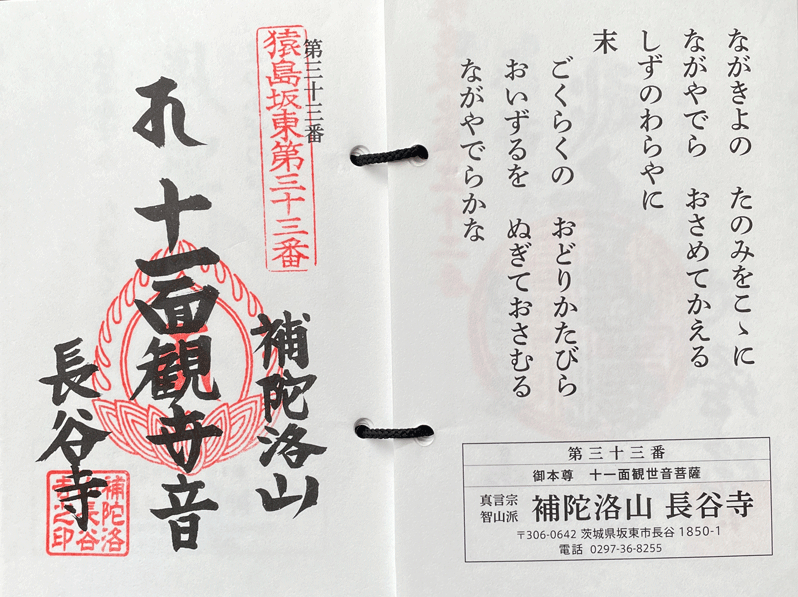 ながきよの　たのみをこゝに
ながやでら　おさめてかえる
しずのわらやに
末
ごくらくの　おどりかたびら
おいずるを　ぬぎておさむる
ながやでらかな
第三十三番
御本尊　十一面観世音菩薩
真言宗
智山派
補陀洛山 長谷寺
〒306-0642 茨城県坂東市長谷 1850-1
電話 0297-36-8255
第三十三番
猿島坂東第三十三番
補陀洛山
十一面観世音
長谷寺
補陀洛
山長谷
寺之印